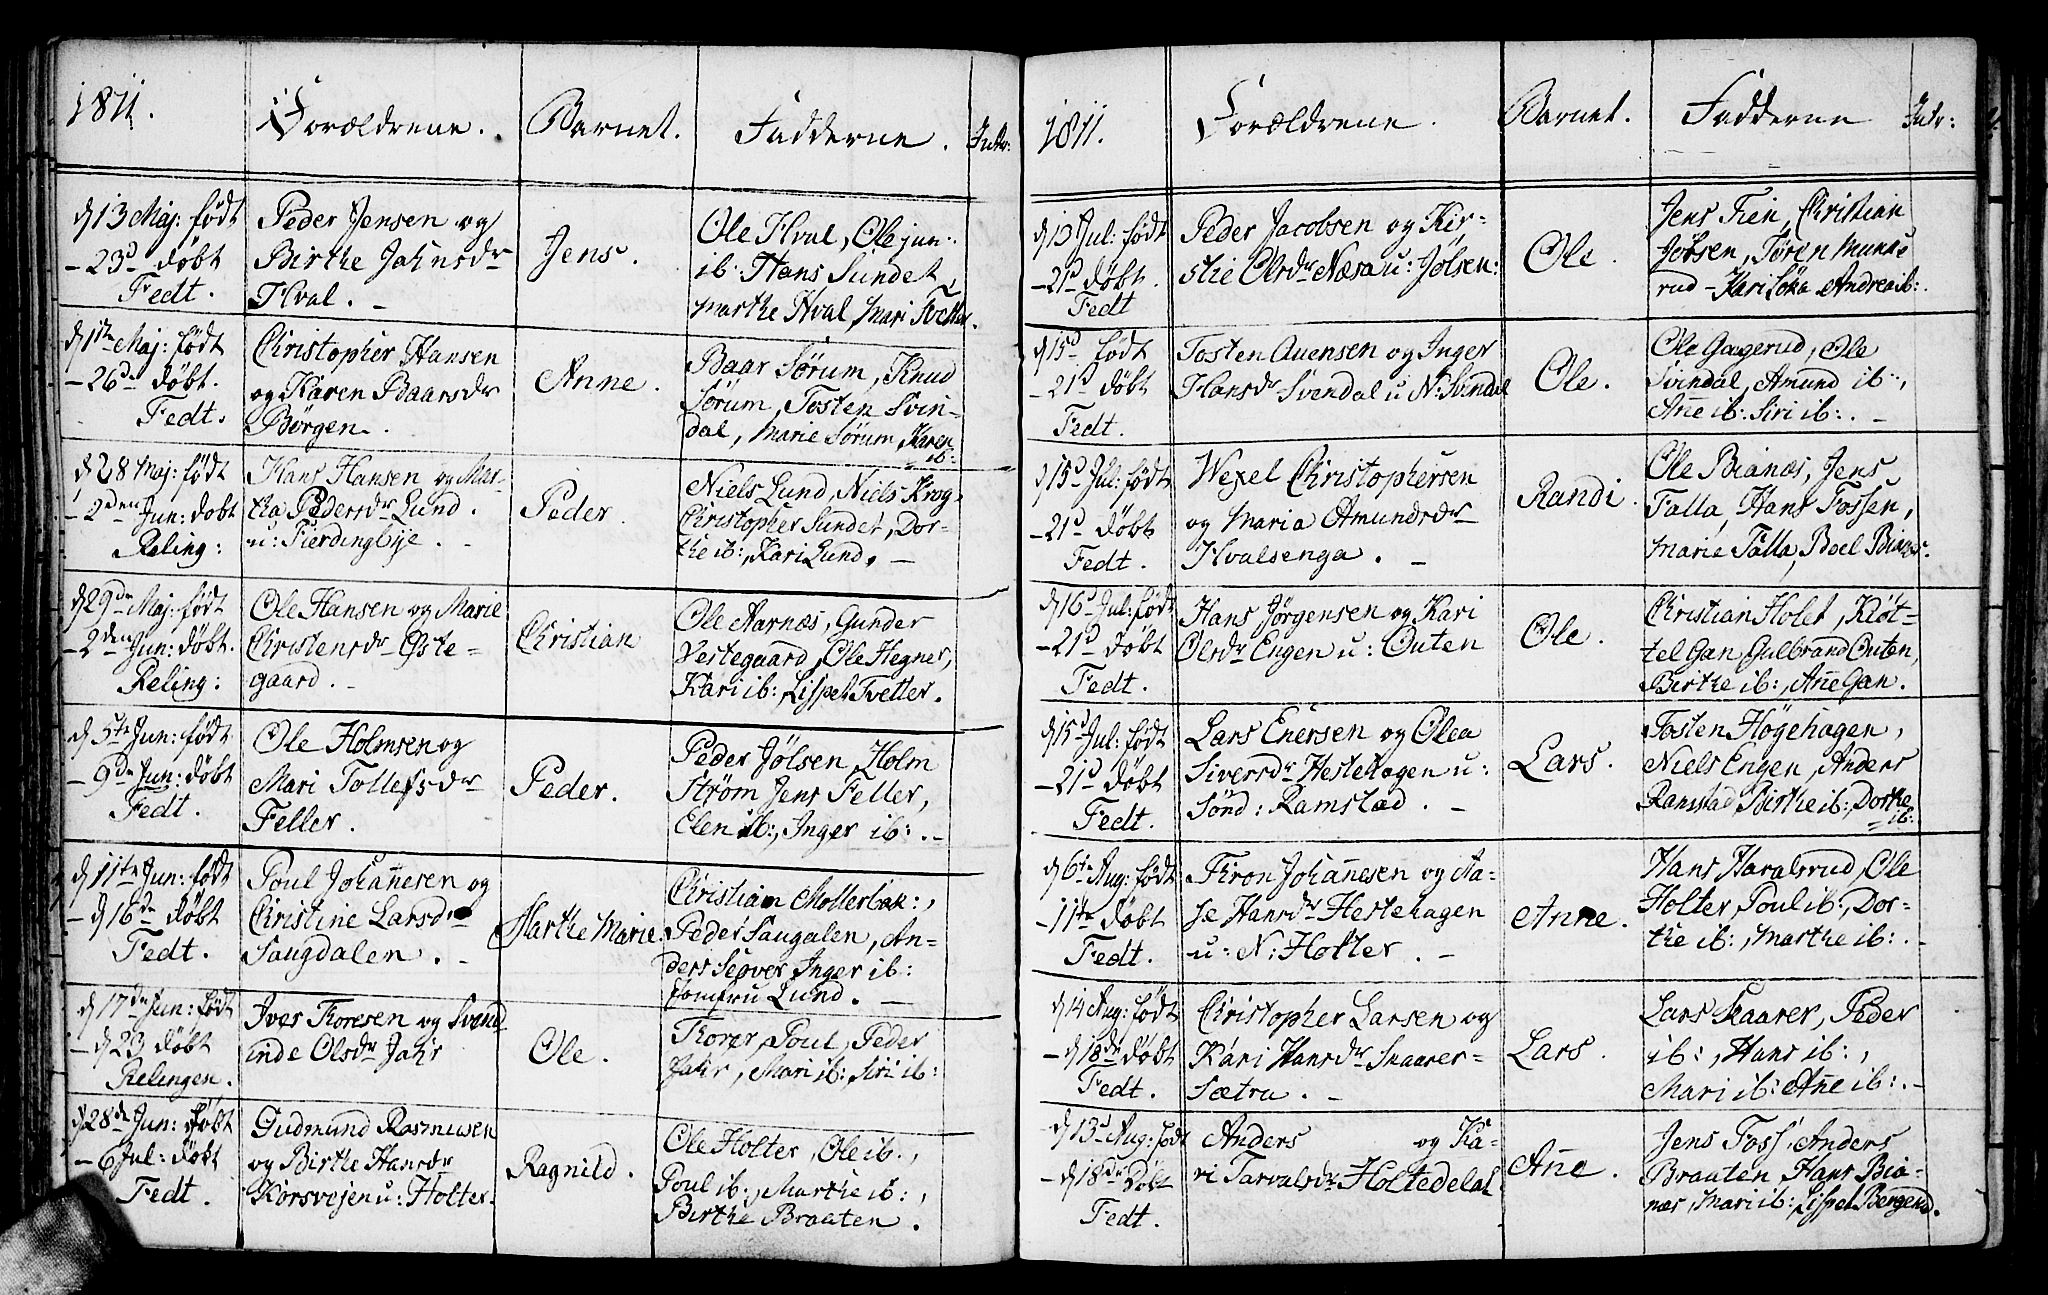 1811.
Forældrene.
Barnet.
Fadderne.
Intr:
d 13 Maj: født
- 23d døbt
Fedt.
Peder Jensen og
Birthe Jahnsdr
Hval. -
Jens.
Ole Hval, Ole jun:
ib: Hans Sundet,
Marthe Hval, Mari Tvetter.
Maj: født
- 26de døbt.
Fedt.
Christopher Hansen
og Karen Baarsdr
Børgen.
Anne.
Baar Sørum, Knud
Sørum, Tosten Svin-
dal, Marie Sørum, Karen
ib:
d 28 Maj: født
- 2den Jun: døbt
Reling:
Hans Hansen og Mar-
tha Pedersdr Lund.
u: Fierdingbye. -
Peder.
Niels Lund, Niels Krog,
Christopher Sundet, Dor-
the ib:, Kari Lund. -
d 29de Maj: født
- 2den Jun: døbt.
Reling:
Ole Hansen og Marie
Christensdr Øste-
gaard. -
Christian
Ole Aarnæs, Gunder
Vestegaard, Ole Hegner,
Kari ib:, Lispet Tvetter.
d 5te Jun: født
- 9de Jun: døbt
Fedt.
Ole Holmsen og
Mari Tollefsdr
Feller.
Peder.
Peder Jølsen, Holm
Strøm, Jens Feller,
Elen ib:, Inger ib: . -
d 11te Jun: født
- d 16de døbt
Fedt.
Poul Johannesen og
Christine Larsdr
Saugdalen. -
Marthe Marie.
Christian Mollerbak:,
Peder Saugalen, An-
ders Scøver, Inger ib:
Jomfru Lund. -
d 17de Jun: født
- d 23 døbt
Relingen.
Iver Toresen og Svend
inde Olsdr Jahr
Ole.
Torer, Poul, Peder
Jahr, Mari ib: Siri ib:
d 28de Jun: født
- 6 Jul: døbt
Fedt.
Gudmund Rasmusen
og Birthe Hansdr
Korsvejen u: Holter.
Ragnild.
Ole Holter, Ole ib.,
Poul ib:, Marthe ib:,
Birthe Braaten.
1811.
Forældrene.
Barnet.
Fadderne
Intr:
d 13 Jul: født
- 21d døbt.
Fedt
Peder Jacobsen og Kir-
stie Olsdr Næsa u: Jølsen:
Ole.
Jens Fien, Christian
Jølsen, Søren Munke
rud - Kari Løka Andrea ib:.
d 15d født
- 21d døbt
Fedt.
Tosten Auensen og Inger
Hansdr Svendal u N: Svindal
Ole.
Ole Gagerud, Ole
Svindal, Amund ib:,
Añe ib: Siri ib:. -
d 15d Jul: født
- 21d døbt
Fedt.
Wexel Christophersen
og Maria Amundsdr
Hvalsenga. -
Randi.
Ole Bianæs, Jens
Falla, Hans Fossen,
Marie Falla, Boel Bianæs.
d 16d Jul: født
- 21d døbt
Fedt.
Hans Jørgensen og Kari
Olsdr Engen u: Outen
Ole.
Christian Holet, Kløt-
tel Gan, Gulbrand Outen,
Birthe ib:, Añe Gan.
d 15d Jul: født
- 21d døbt
Fedt.
Lars Enersen og Olea
Siversdr Hestehagen u:
Sønd: Ramstad. -
Lars.
Tosten Høgehagen,
Niels Engen, Anders
Ramstad, Birthe ib:, Dorthe
ib:
d 6te Aug: født
- 11te døbt
Fedt.
Tron Johañesen og Aa-
se Hansdr Hestehagen
u: N: Holter. -
Anne.
Hans Haralsrud, Ole
Holter, Poul ib:, Dor-
the ib:, Marthe ib:. -
d 14 Aug: født
- d 18de døbt
Fedt.
Christopher Larsen og
Kari Hansdr Skaarer-
Sætra. -
Lars.
Lars Skaarer, Peder
ib:, Hans ib:,
Mari ib: Añe ib:. -
d 13d Aug: født
- d 18de Døbt
Fedt.
Anders og Ka-
ri Tarvalsdr Holtedelal
Añe.
Jens Foss, Anders
Braaten, Hans Bia-
næs, Mari ib:, Lispet Bergerud.